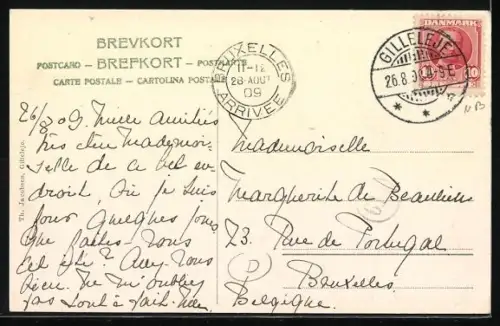 BREVKORT
POSTCARD — BREFKORT — POSTKARTE
CARTE POSTALE — CARTOLINA POSTALE
BRUXELLES
11-12
28 AOUT
09
ARRIVÉE
GILLELEJE
26.8.09. 8-9 E
DANMARK
10
NB
Th. Jacobsen, Gilleleje.
26/8 09. Mille amitiés
très chère Mademoi-
selle de ce bel en-
droit, où je suis
pour quelques jours
Que faites-vous
cet été? Avez-vous
bien. Ne m'oubliez
pas tout à fait.
Mademoiselle
Marguerite de Beaulieu
73. Rue de Portugal
Bruxelles.
Belgique.
D